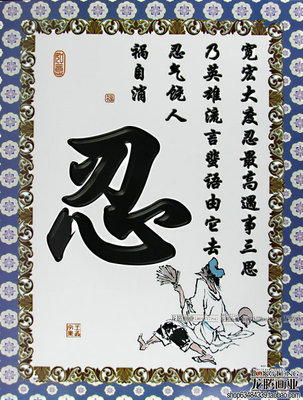 宽宏大度忍最高遇事三思
乃英雄流言蜚语由它去
忍气饶人
祸自消
忍
龙腾画业